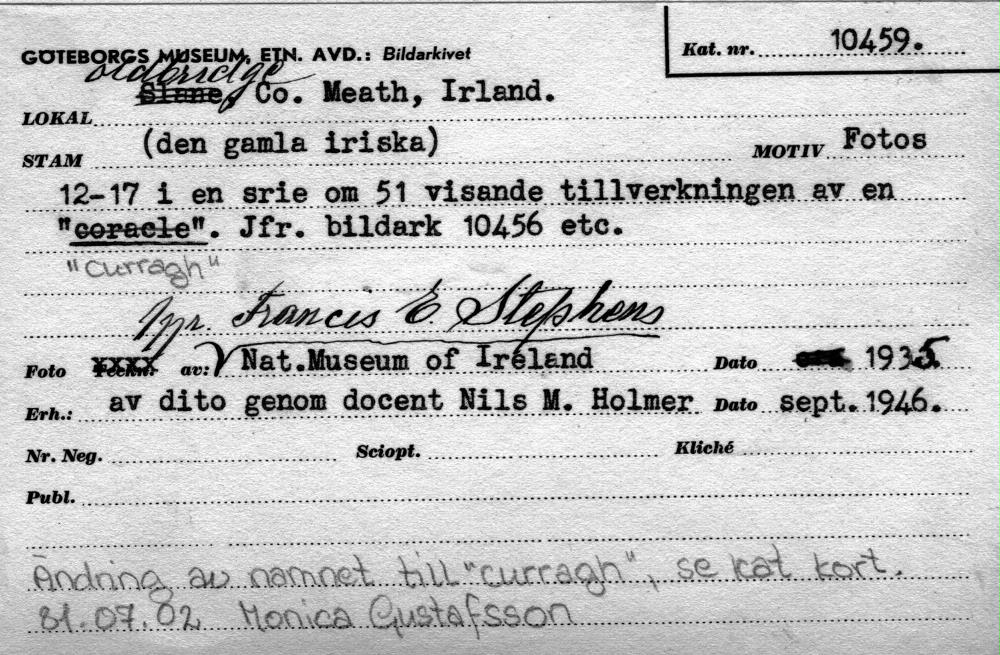 GÖTEBORGS MUSEUM, ETN. AVD.: Bildarkivet
Kat. nr. 10459.
oldbridge
LOKAL Slane, Co. Meath, Irland.
STAM (den gamla iriska) MOTIV Fotos
12-17 i en srie om 51 visande tillverkningen av en
"coracle". Jfr. bildark 10456 etc.
"curragh"
Francis E. Stephens
Foto av: Nat.Museum of Ireland Dato 1935
Erh.: av dito genom docent Nils M. Holmer Dato sept. 1946.
Nr. Neg. Sciopt. Kliché
Publ.
Ändring av namnet till "curragh", se kat kort.
81.07.02 Monica Gustafsson